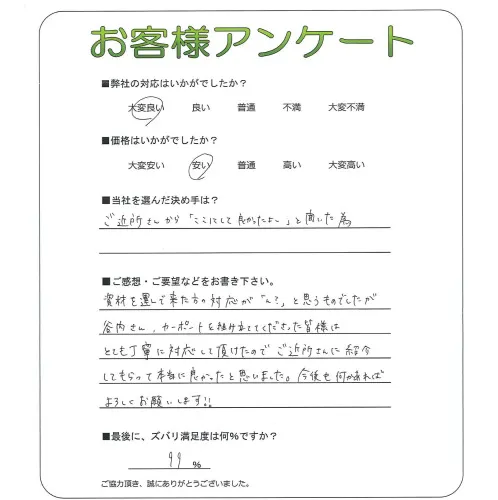 お客様アンケート
■弊社の対応はいかがでしたか？
大変良い 良い 普通 不満 大変不満
■価格はいかがでしたか？
大変安い 安い 普通 高い 大変高い
■当社を選んだ決め手は？
ご近所さんから「ここにして良かったよー」と聞いた為
■ご感想・ご要望などをお書き下さい。
資材を運んで来た方の対応が「ん？」と思うものでしたが
谷内さん、カーポートを組み立ててくださった皆様は
とても丁寧に対応して頂けたのでご近所さんに紹介
してもらって本当に良かったと思いました。今後も何かあれば
よろしくお願いします!!
■最後に、ズバリ満足度は何％ですか？
99 %
ご協力頂き、誠にありがとうございました。